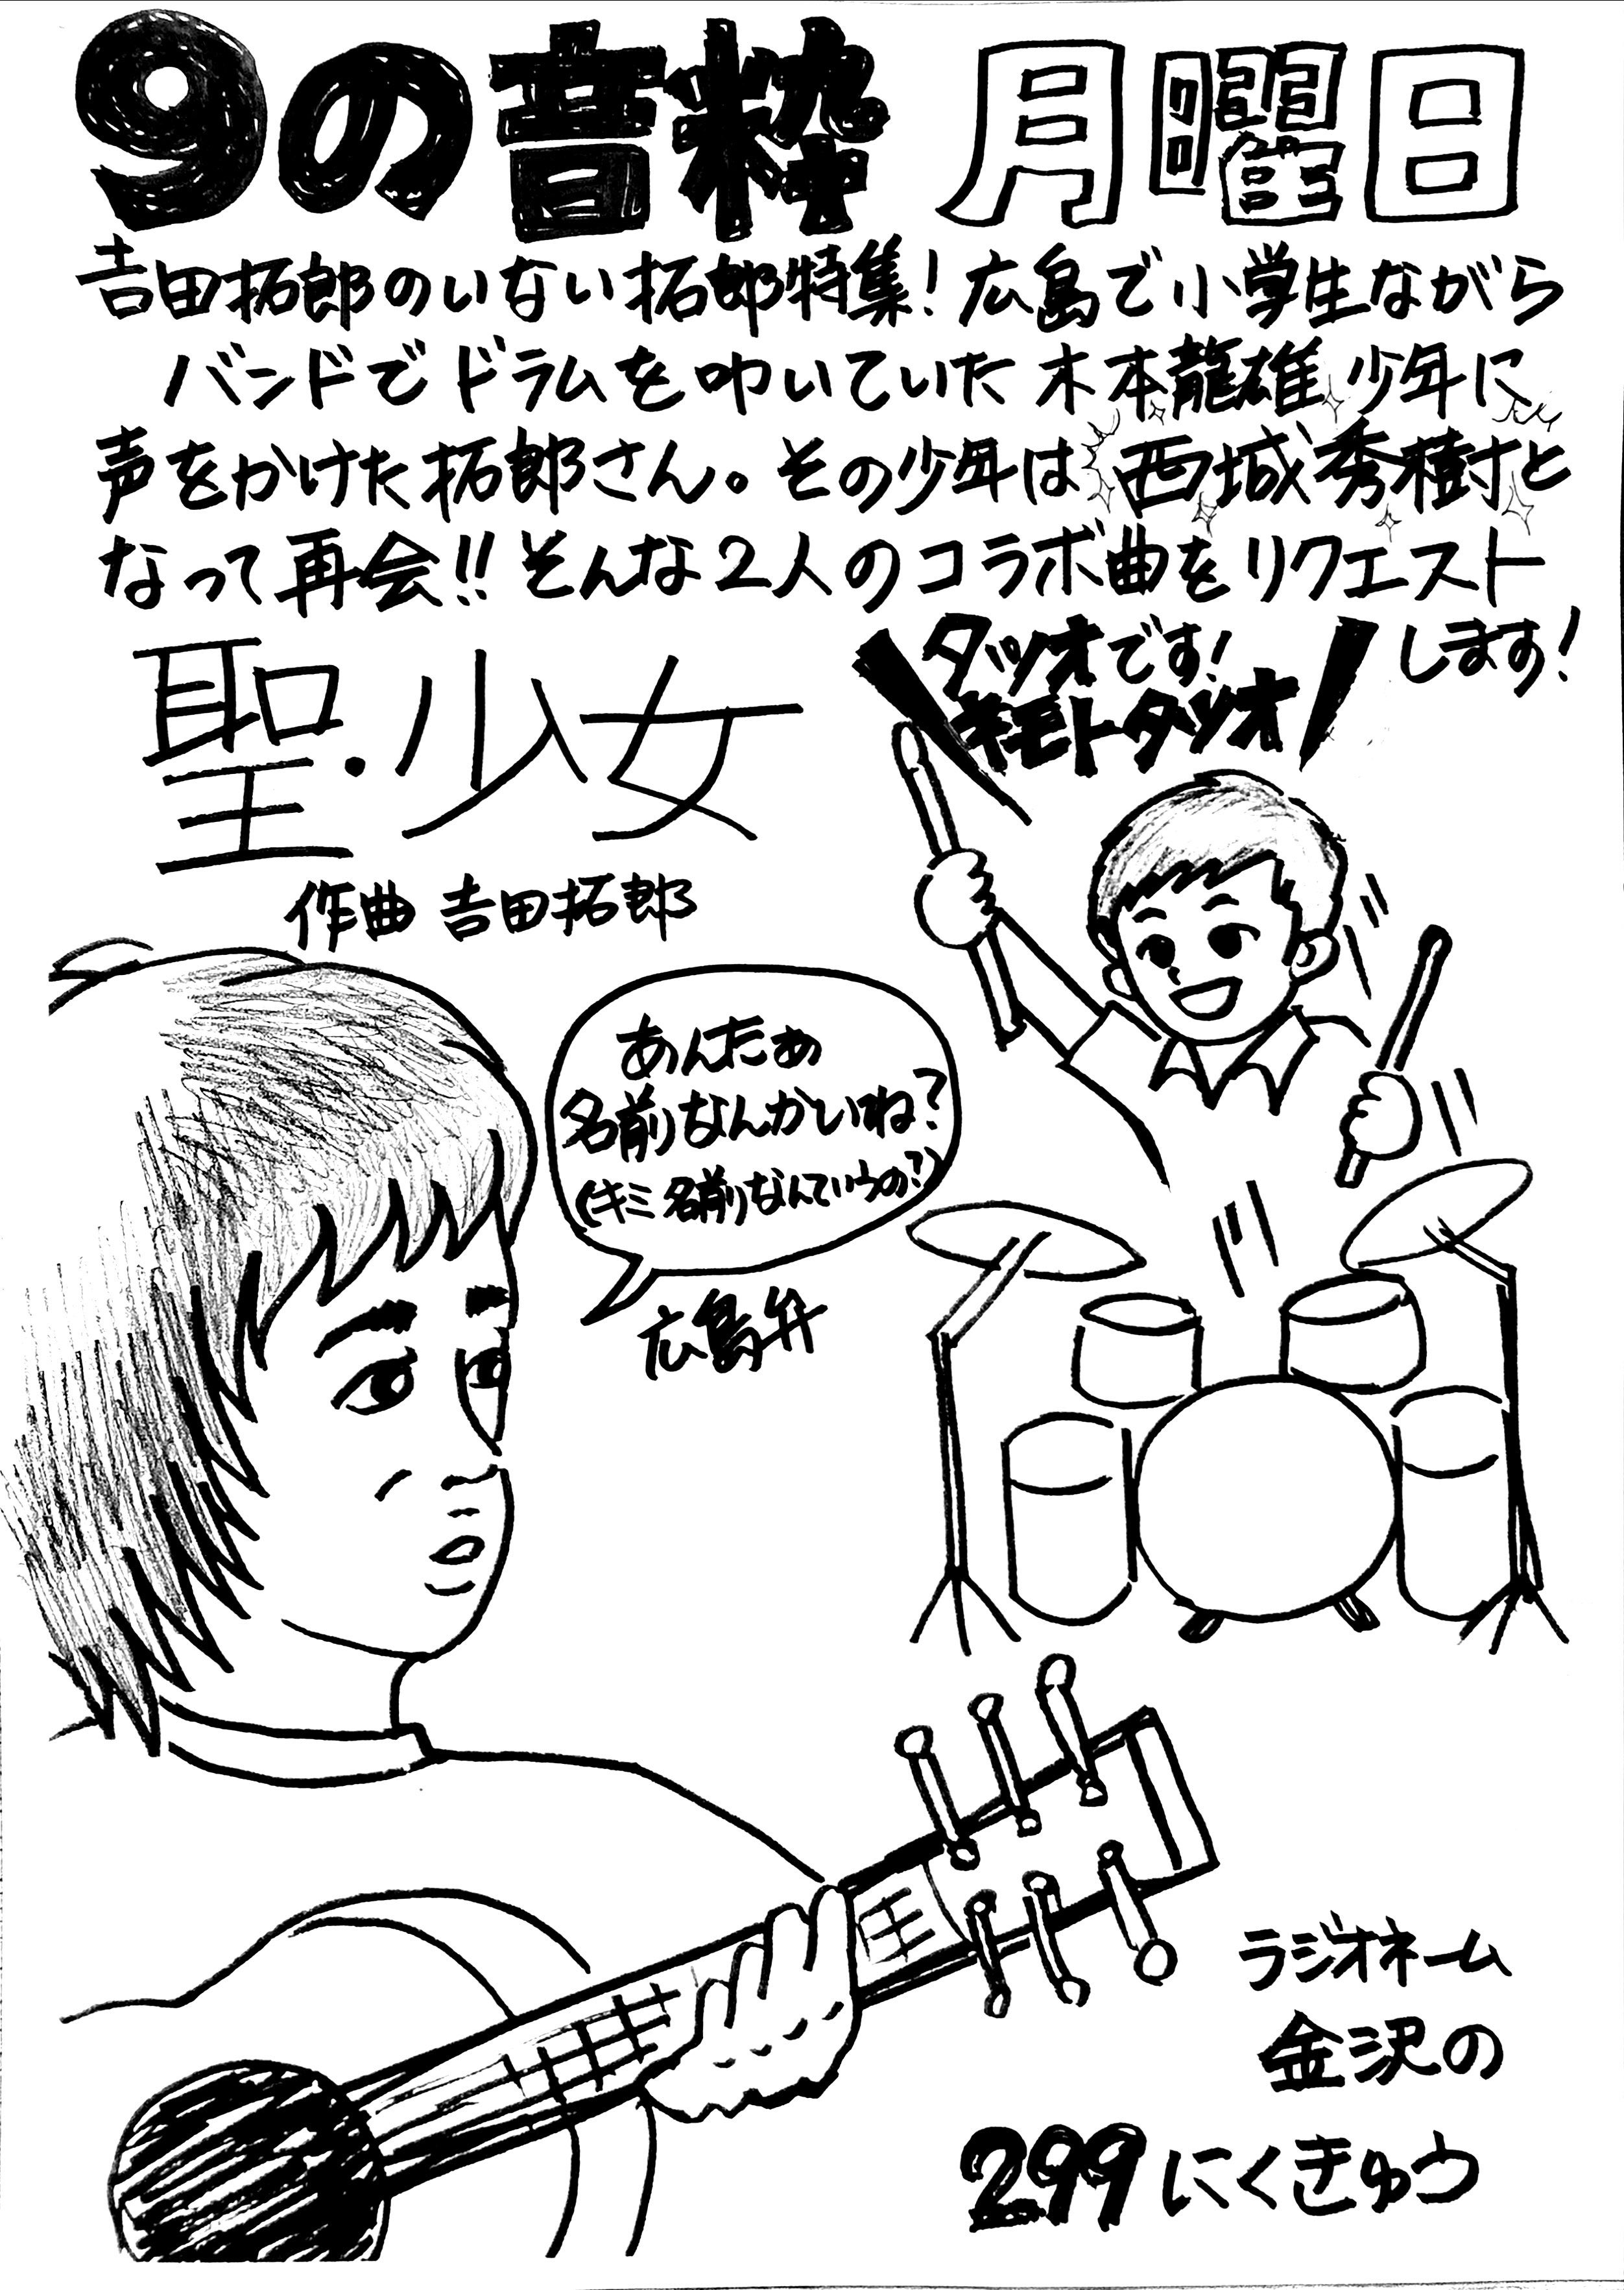 9の音粋 月曜日
吉田拓郎のいない拓郎特集!広島で小学生ながら
バンドでドラムを叩いていた木本龍雄少年に
声をかけた拓郎さん。その少年は西城秀樹と
なって再会!!そんな2人のコラボ曲をリクエスト
します!
タツオです!
キモトタツオ
聖・少女
作曲 吉田拓郎
あんたぁ
名前なんかいね?
(キミ名前なんていうの?)
広島弁
ラジオネーム
金沢の
299にくきゅう